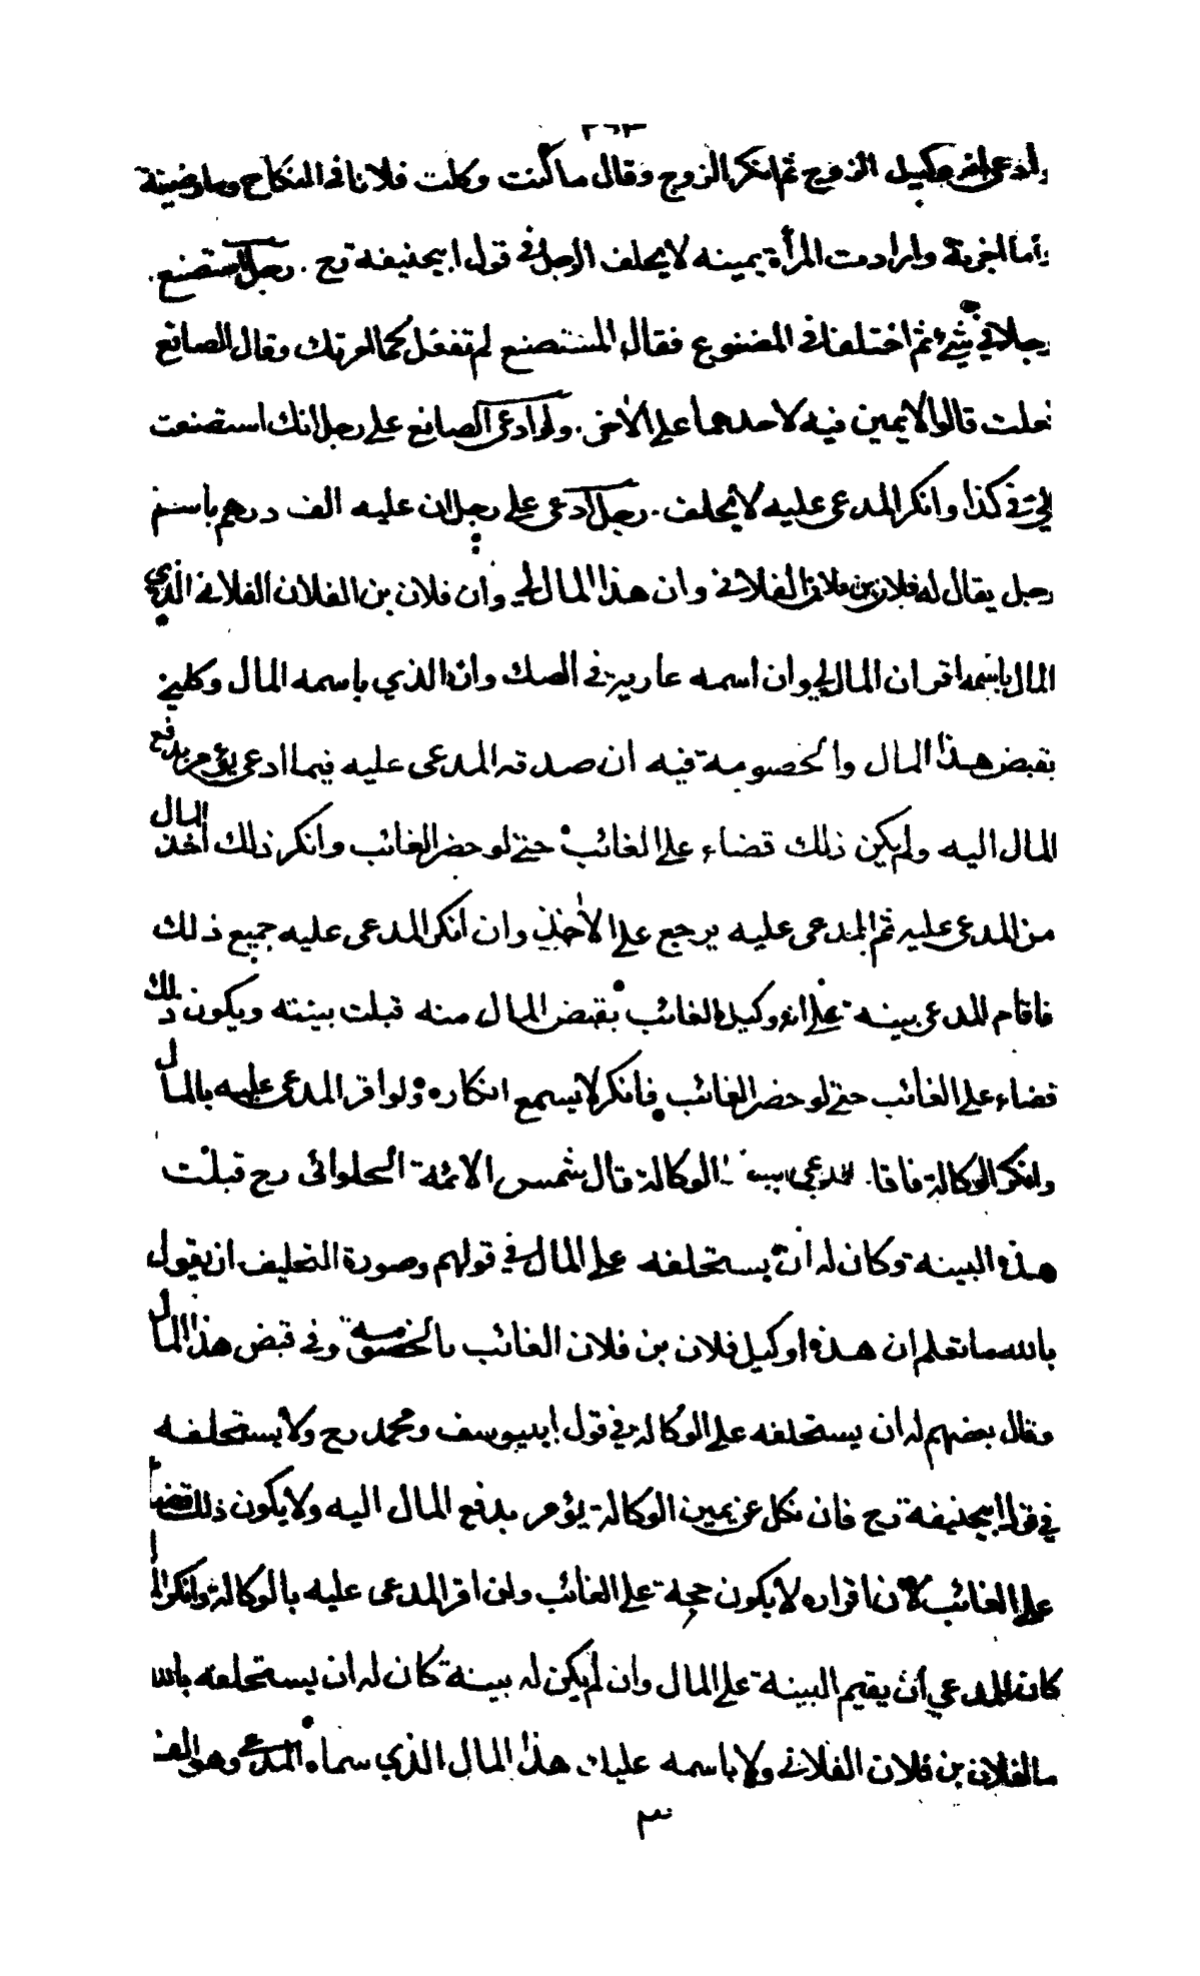 ٢٦٣
وادعى انه وكيل الزوج ثم انكر الزوج وقال ما كنت وكلت فلانا فى النكاح وما رضيته
وارادت المرأة يمينه لا يحلف الرجل فى قول ابيحنيفة رح . رجل استصنع
رجلا في شئ ثم اختلفا فى المصنوع فقال المستصنع لم تفعل كما امرتك وقال الصانع
فعلت قالوا لا يمين فيه لاحدهما على الأخر . ولو ادعى الصانع على رجل انك استصنعت
الي في كذا وانكر المدعى عليه لا يحلف . رجل ادعى على رجل ان عليه الف درهم باسم
رجل يقال له فلان بن فلان الفلانى وان هذا المال لي وان فلان بن الفلان الفلانى الذي
المال باسمه اقر ان المال لي وان اسمه عارية فى الصك وان الذي باسمه المال وكلني
بقبض هذا المال والخصومة فيه ان صدقه المدعى عليه فيما ادعى يؤمر بدفع
المال اليه ولم يكن ذلك قضاء على الغائب حتى لو حضر الغائب وانكر ذلك أخذ المال
من المدعى عليه ثم المدعى عليه يرجع على الأخذ وان انكر المدعى عليه جميع ذلك
فاقام المدعى بينة على انه وكيل الغائب بقبض المال منه قبلت بينته ويكون ذلك
قضاء على الغائب حتى لو حضر الغائب فانكر لا يسمع انكاره ولو اقر المدعى عليه بالمال
وانكر الوكالة فاقا المدعي الوكالة قال شمس الائمة الحلوائى رح قبلت
هذه البينة وكان له ان يستحلفه على المال في قولهم وصورة التحليف ان يقول
بالله ما تعلم ان هذا وكيل فلان بن فلان الغائب بالخصومة وفى قبض هذا المال
وقال بعضهم له ان يستحلفه على الوكالة في قول ابييوسف ومحمد رح ولا يستحلفه
في قول ابيحنيفة رح فان نكل عن يمين الوكالة يؤمر بدفع المال اليه ولا يكون ذلك قضا
على الغائب لان اقراره لا يكون حجة على الغائب ولن اقر المدعى عليه بالوكالة وانكر الـ
كان للمدعي ان يقيم البينة على المال وان لم يكن له بينة كان له ان يستحلفه بالله
ما لفلان بن فلان الفلانى ولا باسمه عليك هذا المال الذي سماه المدعى وهو الف